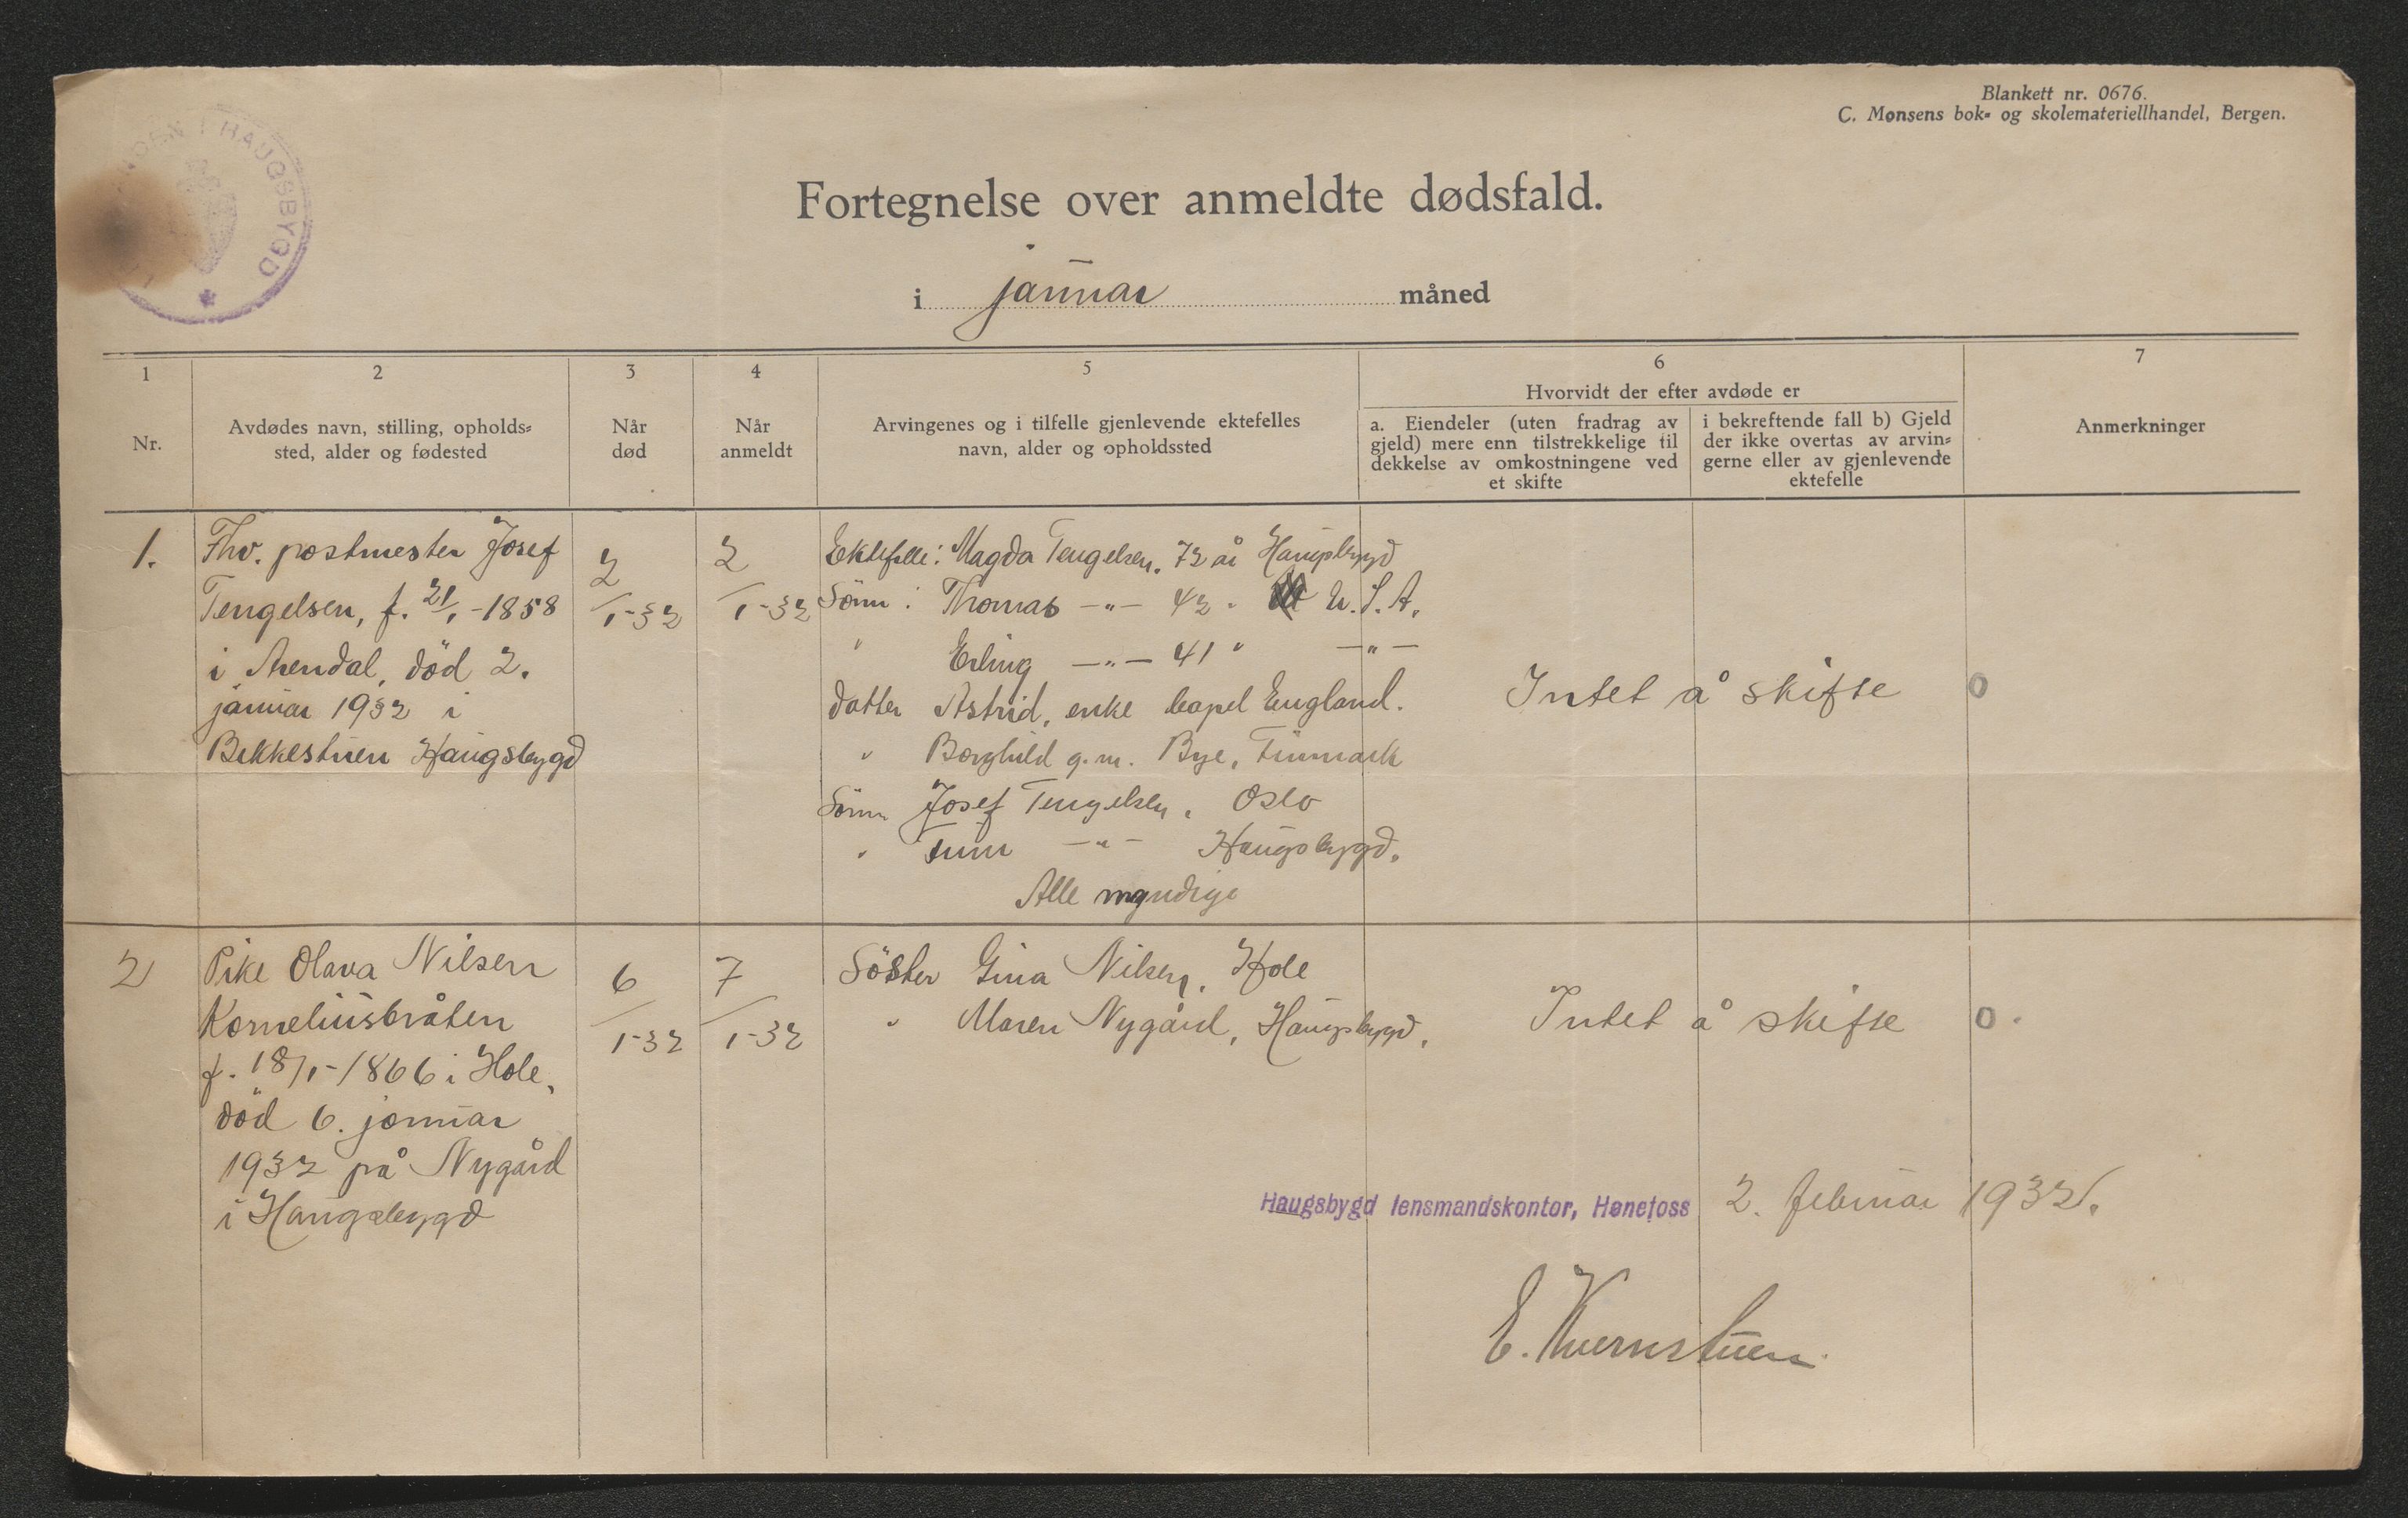 Blankett nr. 0676.
C. Monsens bok- og skolemateriellhandel, Bergen.
I HAUGSBYGD
Fortegnelse over anmeldte dødsfald.
i januar måned
1
2
3
4
5
6
7
Nr.
Avdødes navn, stilling, opholds-
sted, alder og fødested
Når
død
Når
anmeldt
Arvingenes og i tilfelle gjenlevende ektefelles
navn, alder og opholdssted
Hvorvidt der efter avdøde er
a. Eiendeler (uten fradrag av
gjeld) mere enn tilstrekkelige til
dekkelse av omkostningene ved
et skifte
i bekreftende fall b) Gjeld
der ikke overtas av arvin-
gerne eller av gjenlevende
ektefelle
Anmerkninger
1.
Fhv. postmester Josef
Tengelsen, f. 21/1-1858
i Arendal, död 2.
januar 1932 i
Bekkestuen Haugsbygd
2/1-32
2/1-32
Ektefelle: Magda Tengelsen. 72 år Haugsbygd
Sönn : Thomas -"- 42 " U.S.A.
" Erling -"- 41 " -"-
datter Astrid, enke Capel England.
" Borghild g.m. Bye, Finmark
Sönn Josef Tengelsen, Oslo
" -"- Haugsbygd.
Alle myndige
Intet å skifte
0
2
Pike Olava Nilsen
Korneliusbråten
f. 18/1-1866 i Hole,
död 6. januar
1932 på Nygård
i Haugsbygd
6/1-32
7/1-32
Söster Gina Nilsen, Hole
" Maren Nygård, Haugsbygd.
Intet å skifte
0.
Haugsbygd lensmandskontor, Hønefoss 2. februar 1932.
E. Kvernstuen